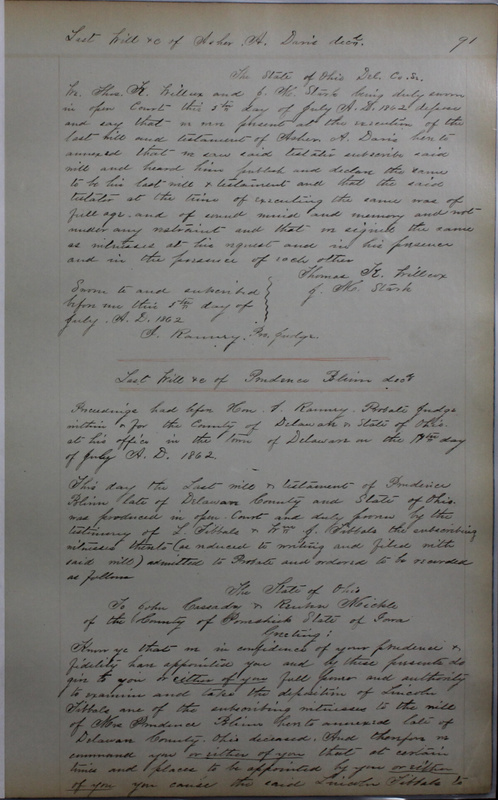 Last Will &c of Asher. A. Davis decd. 91
The State of Ohio Del. Co. Ss.
We Thos. K. Willcox and J. W. Stark being duly sworn
in open Court this 5th day of July A.D. 1862 depose
and say that we were present at the execution of the
last will and testament of Asher. A. Davis hereto
annexed that we saw said testator subscribe said
will and heard him publish and declare the same
to be his last will & testament and that the said
testator at the time of executing the same was of
full age. and of sound mind and memory and not
under any restraint and that we signed the same
as witnesses at his request and in his presence
and in the presence of each other
Thomas K. Willcox
J. W. Stark
Sworn to and subscribed
before me this 5th day of
July. A. D. 1862
Ramery. Pro. Judge
Last Will &c of Prudence Blinn decd
Proceedings had before Hon. Ramery. Probate Judge
within & for the County of Delaware & State of Ohio.
at his office in the town of Delaware on the day
of July A. D. 1862.
This day the Last will & testament of Prudence
Blinn late of Delaware County and State of Ohio.
was produced in open Court and duly proven by the
testimony of L. Tibbals & Wm J. Tibbals the subscribing
witnesses thereto (as reduced to writing and filed with
said will) admitted to Probate and ordered to be recorded
as follows
The State of Ohio
To John Cassada & Reuben Mickle
of the County of Poweshiek State of Iowa
Greeting:
Know ye that we in confidence of your prudence &
fidelity have appointed you and by these presents do
give to you or either of you full power and authority
to examine and take the deposition of Lincoln
Tibbals one of the subscribing witnesses to the will
of Mrs Prudence Blinn hereto annexed late of
Delaware County. Ohio deceased. And therefore we
command you or either of you that at certain
times and places to be appointed by you or either
of you you cause the said Lincoln Tibbals to